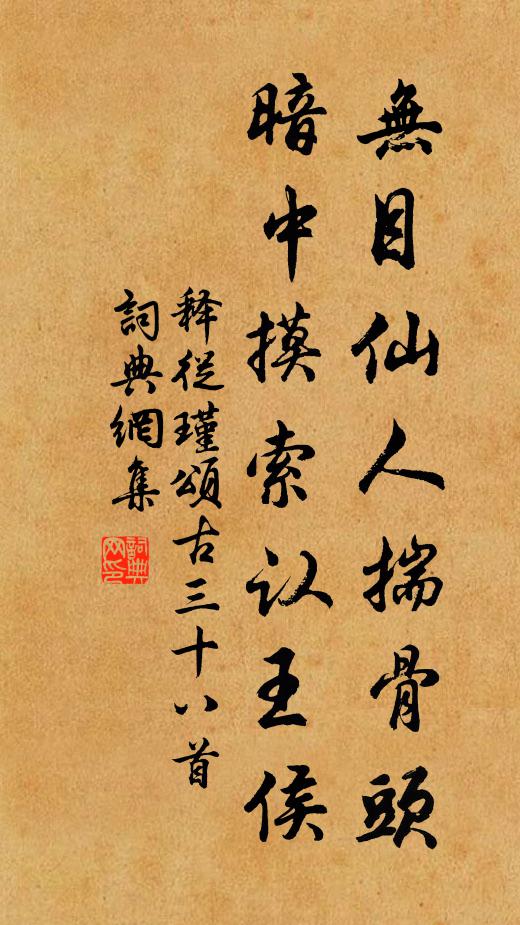 無目仙人揣骨頭
暗中摸索认王侯
释從瑾頌古三十八首
詞典網集
詞典
网印